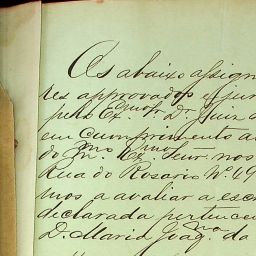 Os abaixo assign
res approvados e jur
pelo Ex.mo Sr. Dr. Juiz d
em Cumprimento a
do Mmo. Ex.mo Senr. nos
Rua do Rosario Nº 69
mos a avaliar a escr
declarada pertencen
D. Maria Joaq.na da